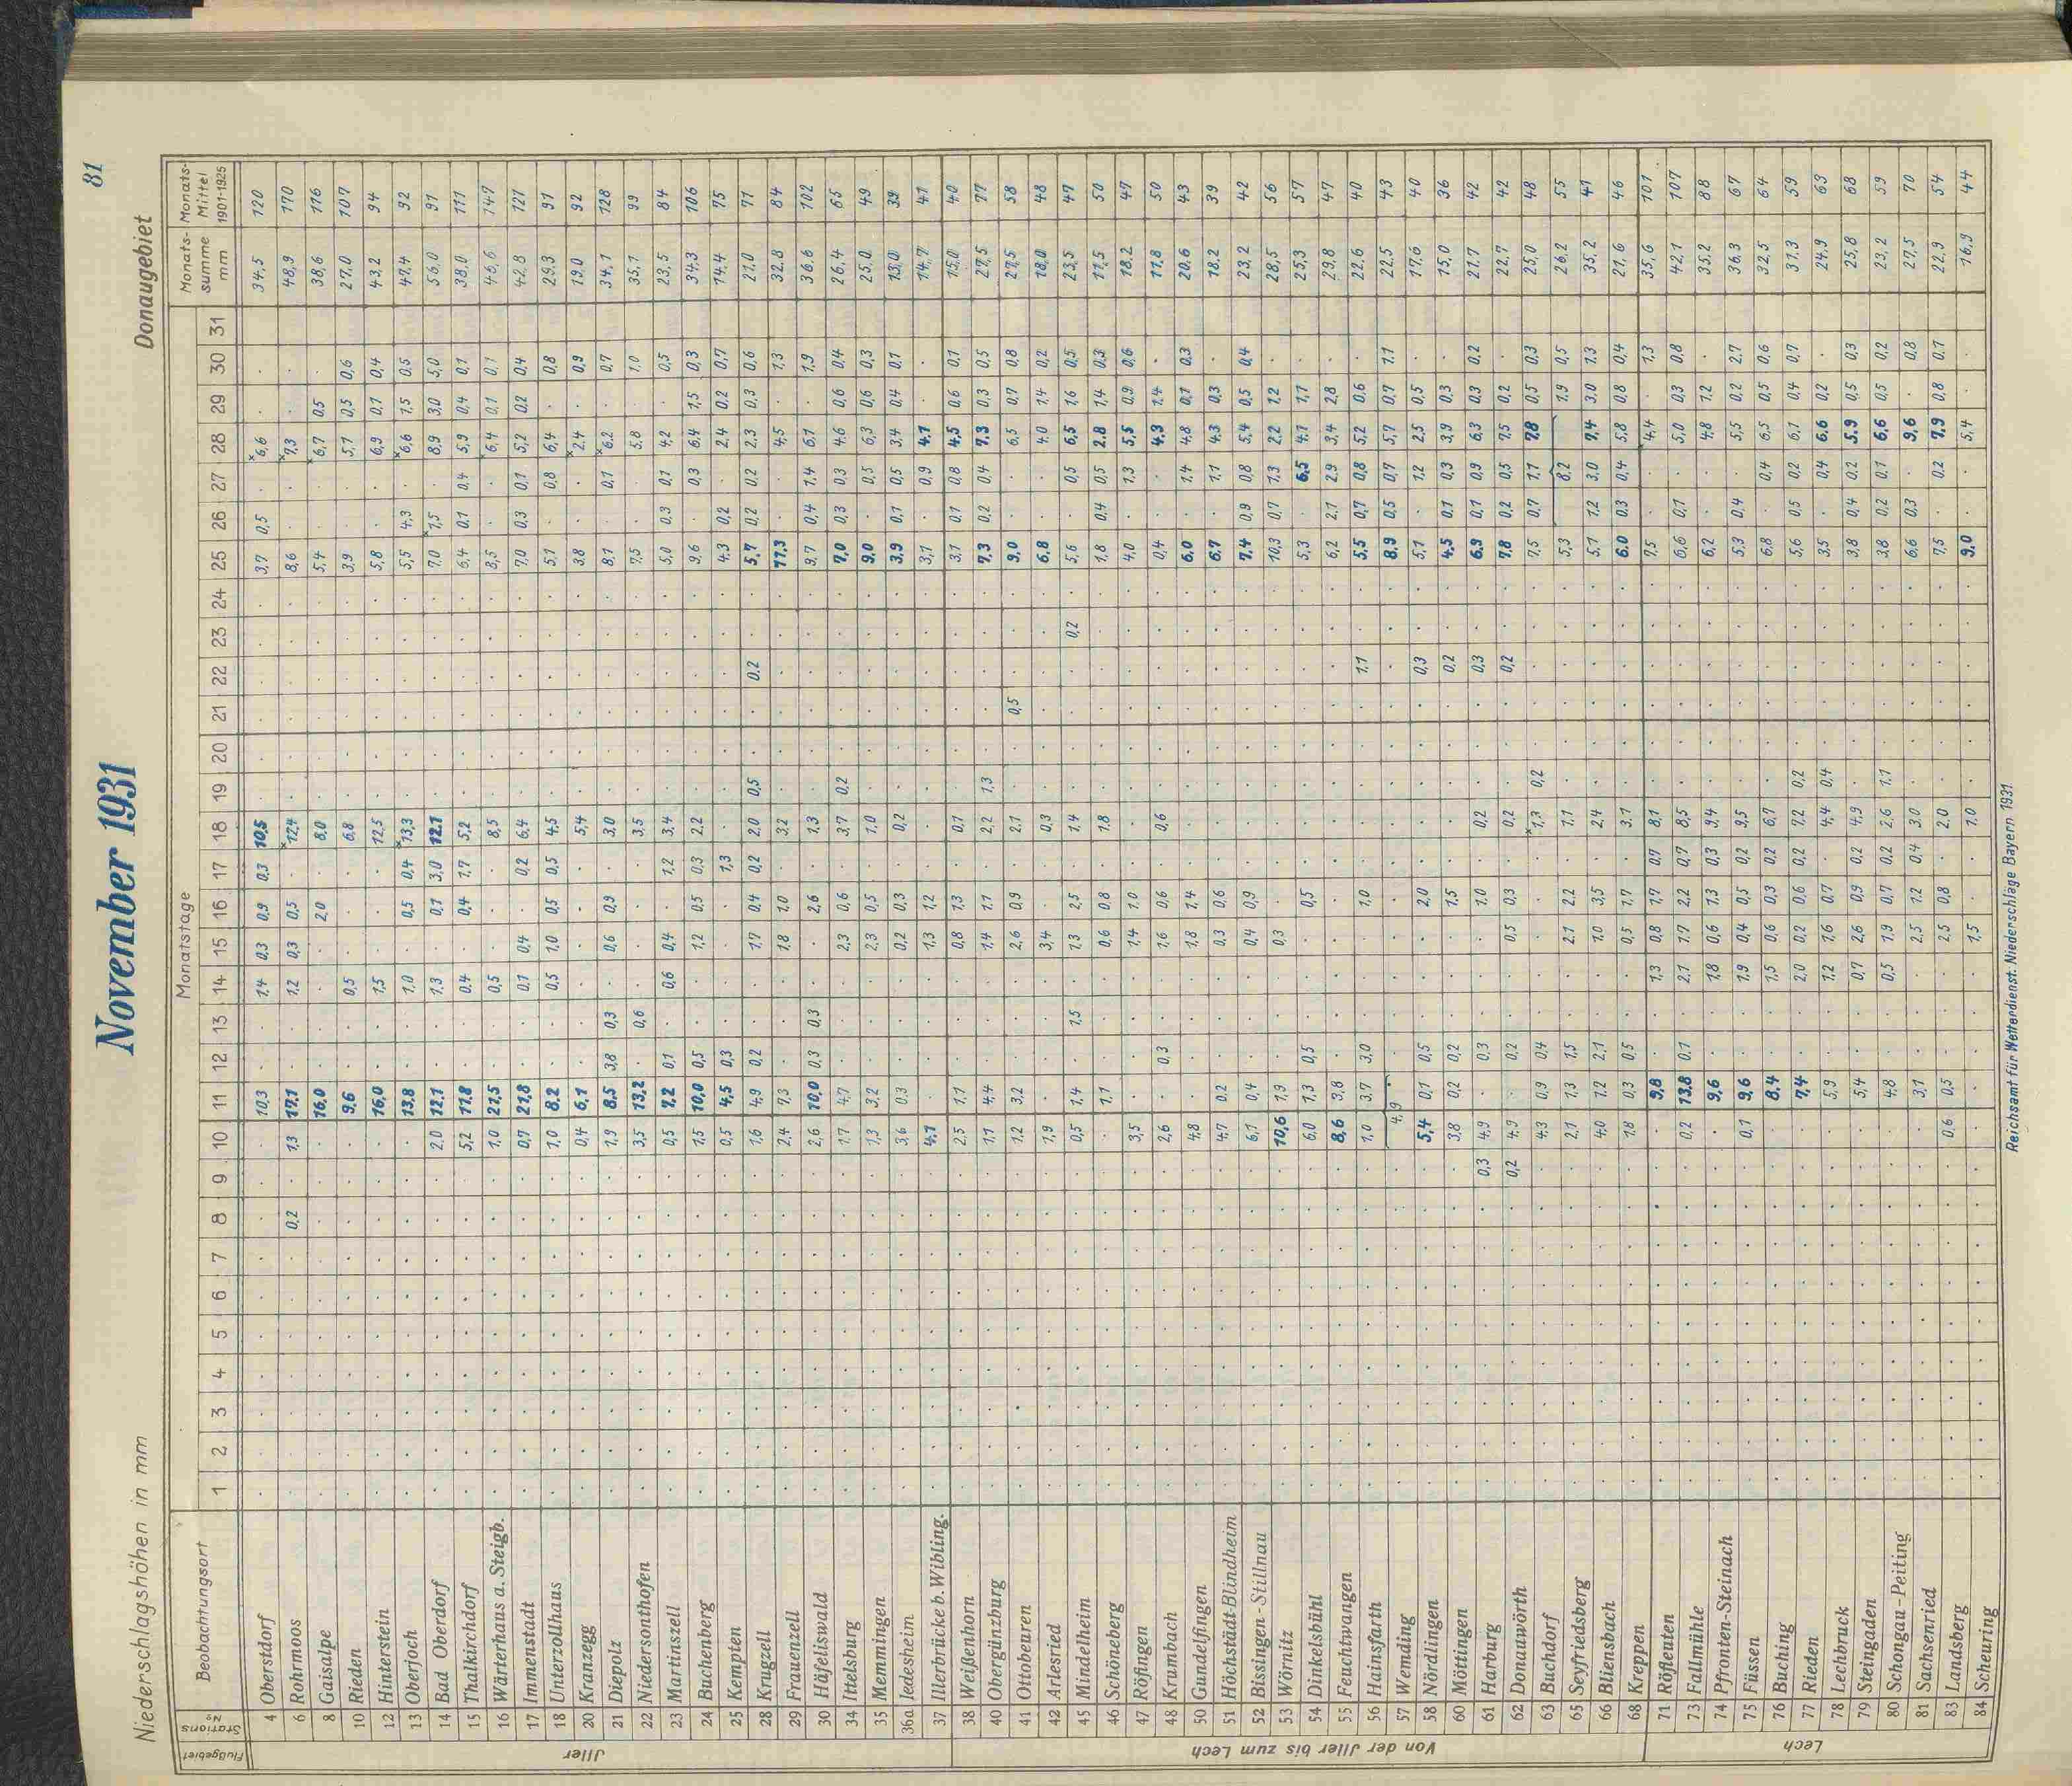 81
Niederschlagshöhen in mm November 1931 Donaugebiet
Flußgebiet Stations No Beobachtungsort Monatstage Monats-summe mm Monats-Mittel 1901-1925
1 2 3 4 5 6 7 8 9 10 11 12 13 14 15 16 17 18 19 20 21 22 23 24 25 26 27 28 29 30 31
Jller
4 Oberstdorf 10,3 1,4 0,3 0,9 0,3 10,5 3,7 0,5 ×6,6 34,5 120
6 Rohrmoos 0,2 1,3 17,1 1,2 0,3 0,5 ×12,4 8,6 ×7,3 48,9 170
8 Gaisalpe 16,0 2,0 8,0 5,4 ×6,7 0,5 38,6 116
10 Rieden 9,6 0,5 6,8 3,9 5,1 0,5 0,6 27,0 107
12 Hinterstein 16,0 1,5 12,5 5,8 6,9 0,1 0,4 43,2 94
13 Oberjoch 13,8 1,0 0,5 0,4 ×13,3 5,5 4,3 ×6,6 1,5 0,5 47,4 92
14 Bad Oberdorf 2,0 12,1 1,3 0,1 3,0 12,1 7,0 ×1,5 8,9 3,0 5,0 56,0 91
15 Thalkirchdorf 5,2 11,8 0,4 0,4 1,7 5,2 6,4 0,1 0,4 5,9 0,4 0,1 38,0 111
16 Wärterhaus a. Steigb. 1,0 21,5 0,5 8,5 8,5 ×6,4 0,1 0,1 46,6 147
17 Immenstadt 0,7 21,8 0,1 0,4 0,2 6,4 7,0 0,3 0,1 5,2 0,2 0,4 42,8 127
18 Unterzollhaus 1,0 8,2 0,5 1,0 0,5 0,5 4,5 5,1 0,8 6,4 0,8 29,3 91
20 Kranzegg 0,4 6,1 5,4 3,8 ×2,4 0,9 19,0 92
21 Diepolz 1,9 8,5 3,8 0,3 0,6 0,9 3,0 8,1 0,1 ×6,2 0,7 34,1 128
22 Niedersonthofen 3,5 13,2 0,6 3,5 7,5 5,8 1,0 35,1 99
23 Martinszell 0,5 7,2 0,1 0,6 0,4 1,2 3,4 5,0 0,3 0,1 4,2 0,5 23,5 84
24 Buchenberg 1,5 10,0 0,5 1,2 0,5 0,3 2,2 9,6 0,3 6,4 1,5 0,3 34,3 106
25 Kempten 0,5 4,5 0,3 1,3 4,3 0,2 2,4 0,2 0,7 14,4 75
28 Krugzell 1,6 4,9 0,2 1,7 0,4 0,2 2,0 0,5 0,2 5,7 0,2 0,2 2,3 0,3 0,6 21,0 71
29 Frauenzell 2,4 7,3 1,8 1,0 3,2 11,3 4,5 1,3 32,8 84
30 Häfelswald 2,6 10,0 0,3 0,3 2,6 1,3 9,7 0,4 1,4 6,1 1,9 36,6 102
34 Ittelsburg 1,7 4,7 2,3 0,6 3,7 0,2 7,0 0,3 0,3 4,6 0,6 0,4 26,4 65
35 Memmingen 1,3 3,2 2,3 0,5 1,0 9,0 0,5 6,3 0,6 0,3 25,0 49
36a Jedesheim 3,6 0,3 0,2 0,3 0,2 3,9 0,1 0,5 3,4 0,4 0,1 13,0 39
37 Illerbrücke b. Wibling. 4,1 1,3 1,2 3,1 0,9 4,1 14,7 41
Von der Jller bis zum Lech
38 Weißenhorn 2,5 1,1 0,8 1,3 0,1 3,1 0,1 0,8 4,5 0,6 0,1 15,0 40
40 Obergünzburg 1,1 4,4 1,4 1,1 2,2 1,3 7,3 0,2 0,4 7,3 0,3 0,5 27,5 77
41 Ottobeuren 1,2 3,2 2,6 0,9 2,1 0,5 9,0 6,5 0,7 0,8 27,5 58
42 Arlesried 1,9 3,4 0,3 6,8 4,0 1,4 0,2 18,0 48
45 Mindelheim 0,5 1,4 1,5 1,3 2,5 1,4 0,2 5,6 0,5 6,5 1,6 0,5 23,5 47
46 Schöneberg 1,1 0,6 0,8 1,8 1,8 0,4 0,5 2,8 1,4 0,3 11,5 50
47 Röfingen 3,5 1,4 1,0 4,0 1,3 5,5 0,9 0,6 18,2 47
48 Krumbach 2,6 0,3 1,6 0,6 0,6 0,4 4,3 1,4 11,8 50
50 Gundelfingen 4,8 1,8 1,4 6,0 1,4 4,8 0,1 0,3 20,6 43
51 Höchstädt-Blindheim 4,7 0,2 0,3 0,6 6,7 1,1 4,3 0,3 18,2 39
52 Bissingen-Stillnau 6,1 0,4 0,4 0,9 7,4 0,9 0,8 5,4 0,5 0,4 23,2 42
53 Wörnitz 10,6 1,9 0,3 10,3 0,7 1,3 2,2 1,2 28,5 56
54 Dinkelsbühl 6,0 1,3 0,5 0,5 5,3 6,5 4,1 1,1 25,3 57
55 Feuchtwangen 8,6 3,8 6,2 2,1 2,9 3,4 2,8 29,8 47
56 Hainsfarth 1,0 3,7 3,0 1,0 1,1 5,5 0,7 0,8 5,2 0,6 22,6 40
57 Wemding 4,9 8,9 0,5 0,7 5,7 0,7 1,1 22,5 43
58 Nördlingen 5,4 0,1 0,5 2,0 0,3 5,1 1,2 2,5 0,5 17,6 40
60 Möttingen 3,8 0,2 0,2 1,5 0,2 4,5 0,1 0,3 3,9 0,3 15,0 36
61 Harburg 0,3 4,9 0,3 1,0 0,2 0,3 6,9 0,1 0,9 6,3 0,3 0,2 21,7 42
62 Donauwörth 0,2 4,9 0,2 0,5 0,3 0,2 0,2 7,8 0,2 0,5 7,5 0,2 22,7 42
63 Buchdorf 4,3 0,9 0,4 ×1,3 0,2 7,5 0,7 1,1 7,8 0,5 0,3 25,0 48
65 Seyfriedsberg 2,1 1,3 1,5 2,1 2,2 1,1 5,3 8,2 1,9 0,5 26,2 55
66 Biensbach 4,0 1,2 2,1 1,0 3,5 2,4 5,1 1,2 3,0 7,4 3,0 1,3 35,2 41
68 Kreppen 1,8 0,3 0,5 0,5 1,7 3,1 6,0 0,3 0,4 5,8 0,8 0,4 21,6 46
Lech
71 Röfleuten 9,8 1,3 0,8 1,7 0,7 8,1 7,5 4,4 1,3 35,6 101
73 Fallmühle 0,2 13,8 0,1 2,1 1,7 2,2 0,7 8,5 6,6 0,1 5,0 0,3 0,8 42,1 107
74 Pfronten-Steinach 9,6 1,8 0,6 1,3 0,3 9,4 6,2 4,8 1,2 35,2 88
75 Füssen 0,1 9,6 1,9 0,4 0,5 0,2 9,5 5,3 0,4 5,5 0,2 2,7 36,3 67
76 Buching 8,4 1,5 0,6 0,3 0,2 6,7 6,8 0,4 6,5 0,5 0,6 32,5 64
77 Rieden 7,4 2,0 0,2 0,6 0,2 7,2 0,2 5,6 0,5 0,2 6,1 0,4 0,7 31,3 59
78 Lechbruck 5,9 1,2 1,6 0,7 4,4 0,4 3,5 0,4 6,6 0,2 24,9 63
79 Steingaden 5,4 0,7 2,6 0,9 0,2 4,9 3,8 0,4 0,2 5,9 0,5 0,3 25,8 68
80 Schongau-Peiting 4,8 0,5 1,9 0,7 0,2 2,6 1,1 3,8 0,2 0,1 6,6 0,5 0,2 23,2 59
81 Sachsenried 3,1 2,5 1,2 0,4 3,0 6,6 0,3 9,6 0,8 27,5 70
83 Landsberg 0,6 0,5 2,5 0,8 2,0 7,5 0,2 7,9 0,8 0,1 22,9 54
84 Scheuring 1,5 1,0 9,0 5,4 16,9 44
Reichsamt für Wetterdienst. Niederschläge Bayern 1931